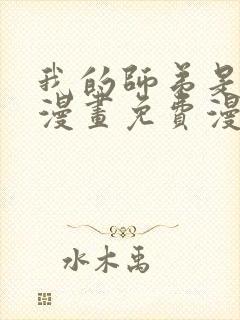 我的師弟是
漫畫免費漫
水木禹